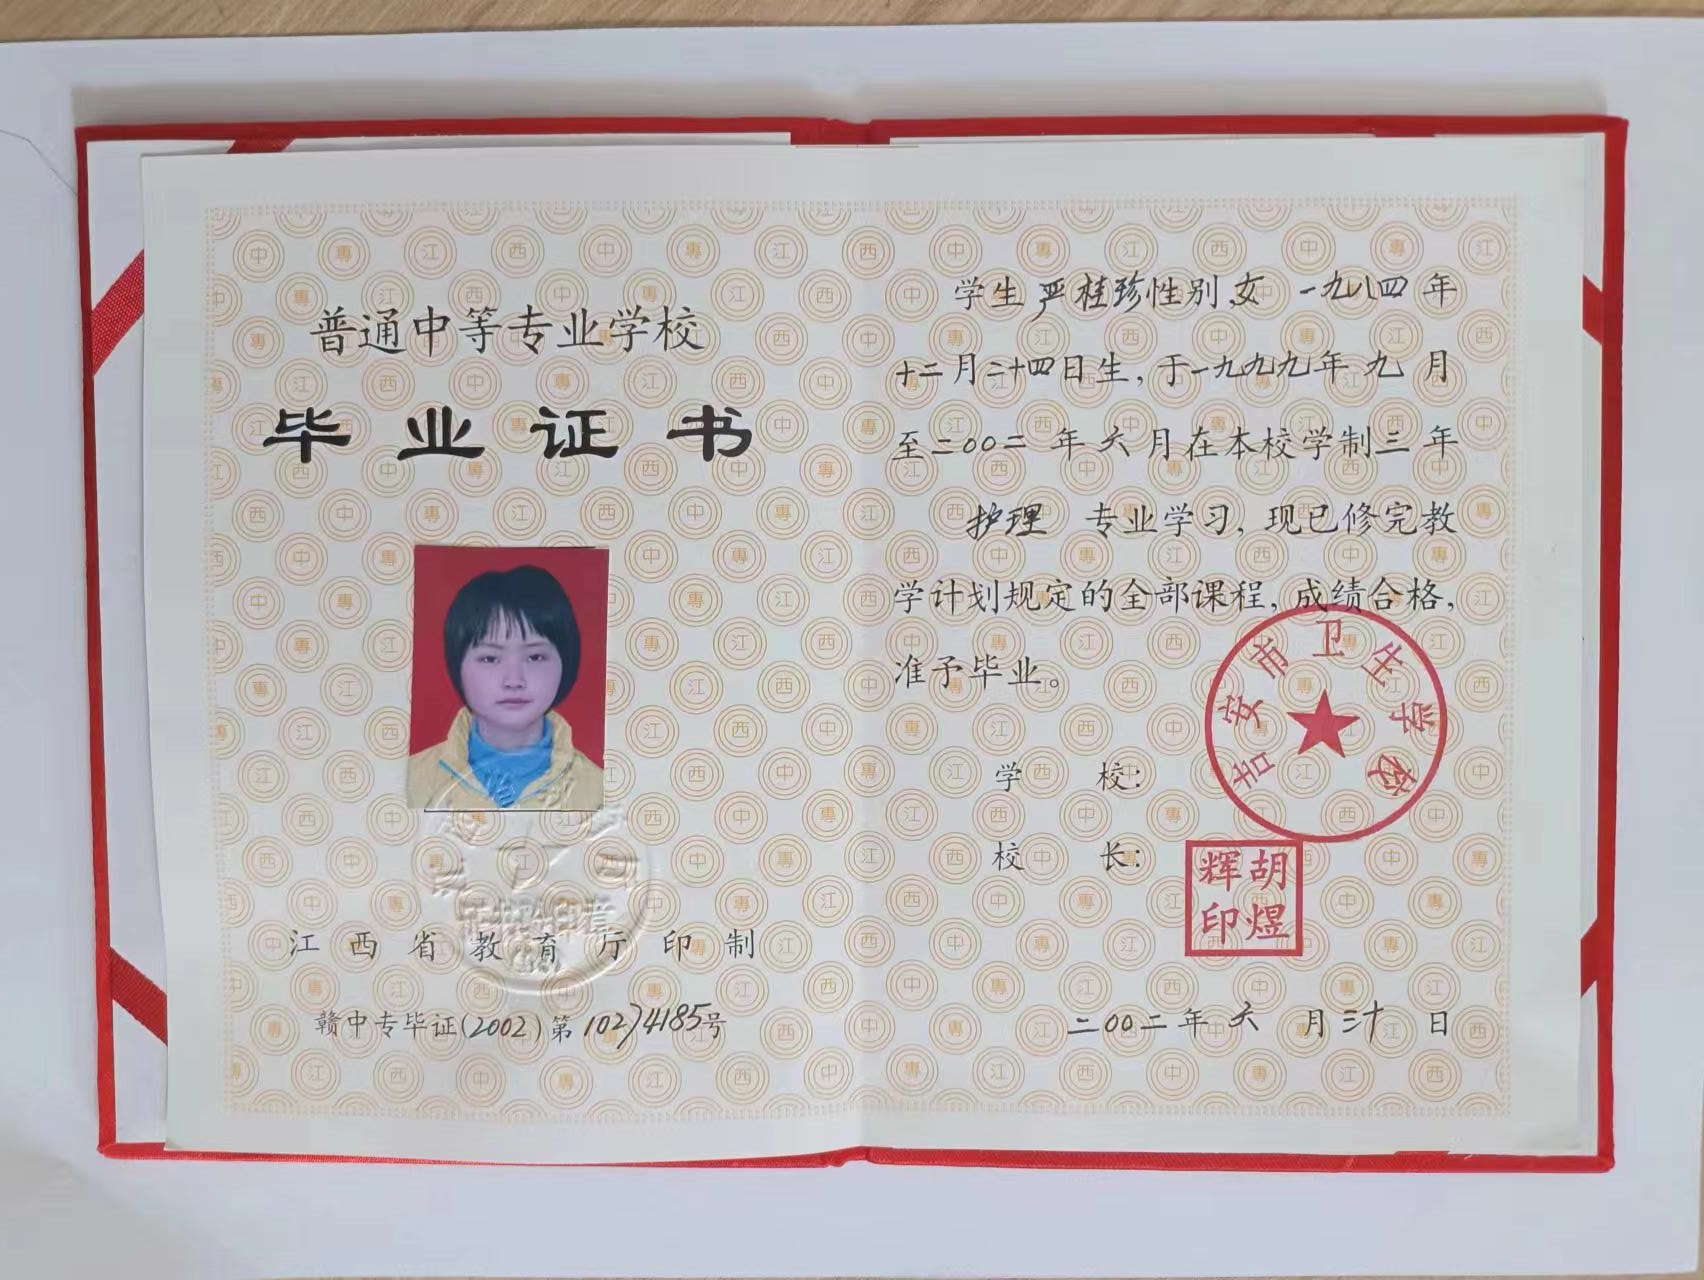 普通中等专业学校
毕业证书
江西省教育厅印制
赣中专毕证(2002)第102)4185号
学生严桂珍性别女一九八四年
十二月二十四日生,于一九九九年九月
至二00二年六月在本校学制三年
护理专业学习,现已修完教
学计划规定的全部课程,成绩合格,
准予毕业。
吉安市卫生学校
学校:
校长:
胡煜辉印
二00二年六月三十日